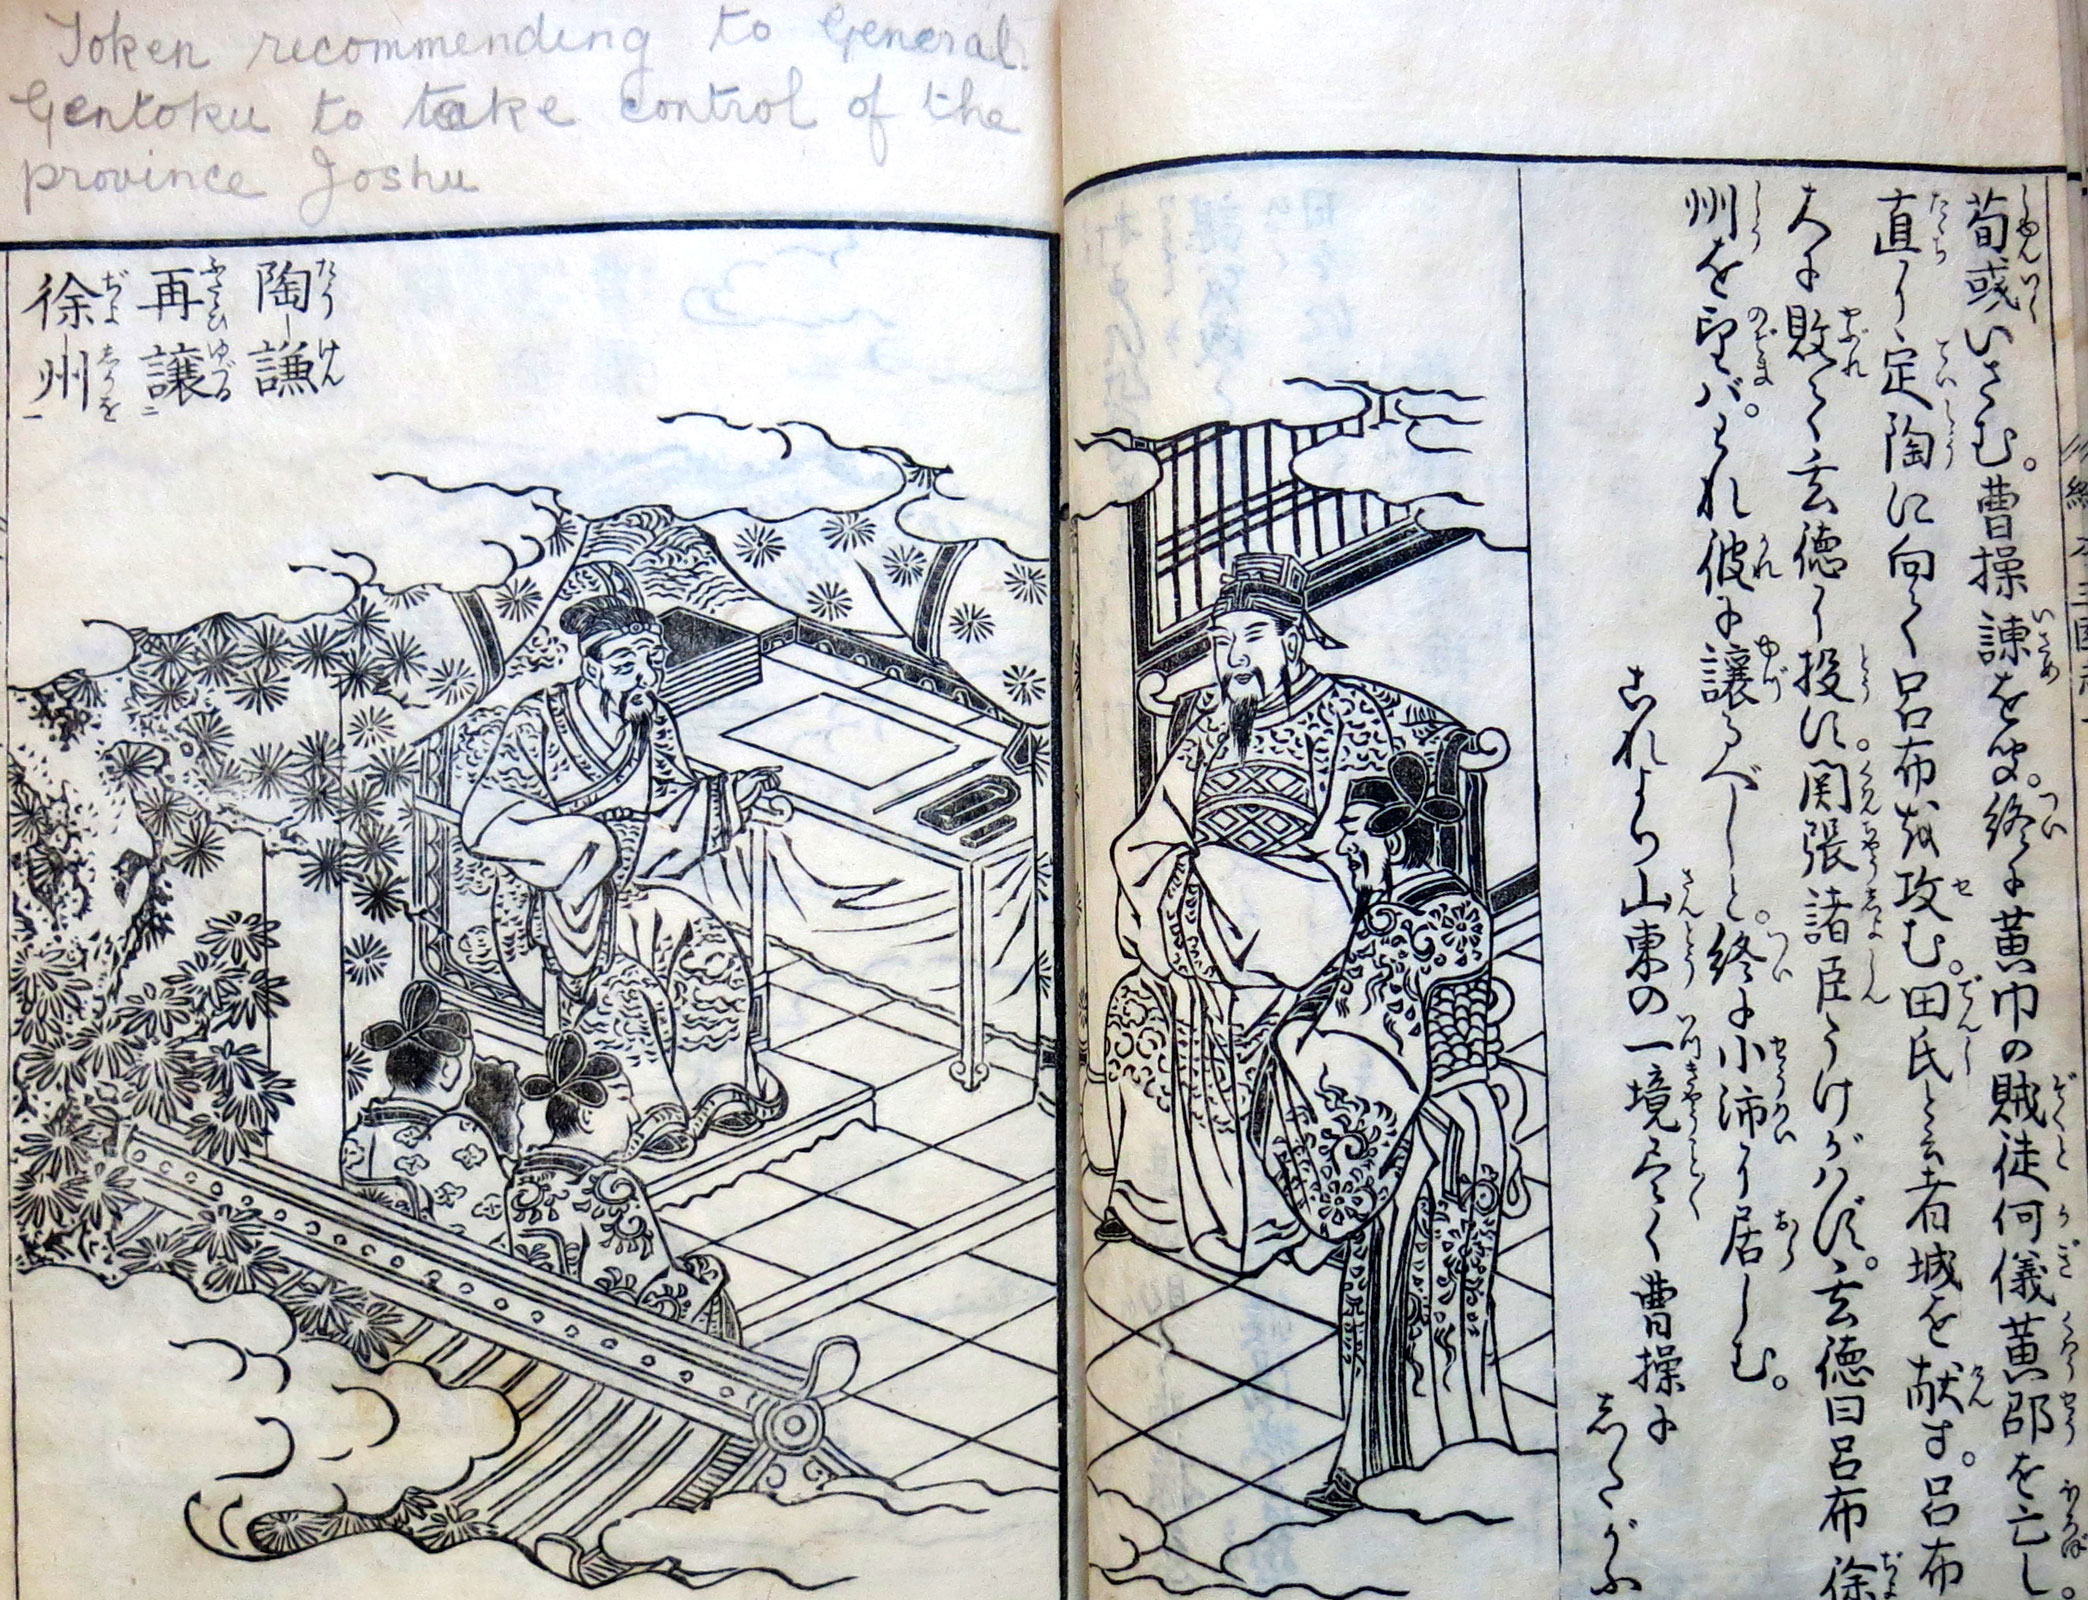 Token recommending to General
Gentoku to take control of the
province Joshu
荀彧いさむ。曹操諌を受。終に黄巾の賊徒何儀黄邵を亡し。
直に定陶に向て呂布を攻む。田氏と云者城を献す。呂布
大に敗て玄徳に投ず。関張諸臣うけがハず。玄徳曰呂布徐
州を望バ。われ彼に譲るべしと。終に小沛に居しむ。
これより山東の一境尽く曹操に
したがふ
陶謙
再譲
徐州